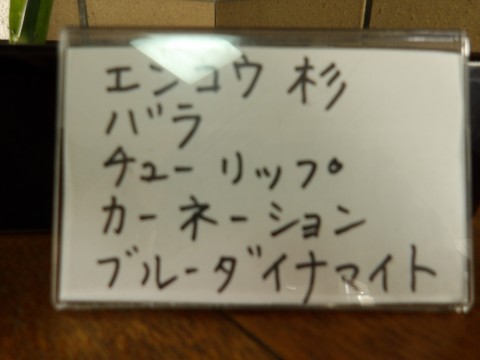 エンコウ 杉
バラ
チューリップ
カーネーション
ブルーダイナマイト